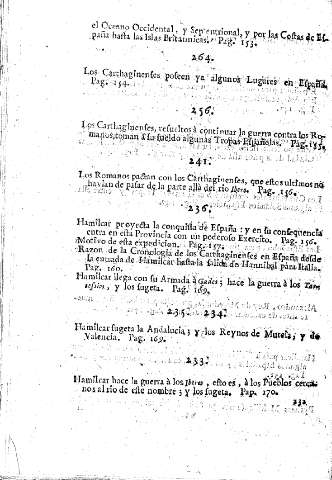 el Oceano Occidental, y Septentrional, y por las Costas de Es-
paña hasta las Islas Britannicas. Pag. 153.
264.
Los Carthaginenses poseen ya algunos Lugares en España.
Pag. 154.
256.
Los Carthaginenses, resueltos à continuar la guerra contra los Ro-
manos, toman à su sueldo algunas Tropas Españolas. Pag. 155.
241.
Los Romanos pactan con los Carthaginenses, que estos ultimos no
havian de pasar de la parte allà del rio Ibero. Pag. 156.
236.
Hamilcar proyecta la conquista de España: y en su consequencia
entra en esta Provincia con un poderoso Exercito. Pag. 156.
Motivo de esta expedicion. Pag. 157.
Razon de la Cronologia de los Carthaginenses en España desde
la entrada de Hamilcar hasta la salida de Hannibal para Italia.
Pag. 160.
Hamilcar llega con su Armada à Gades; hace la guerra à los Tar-
tesios, y los sugeta. Pag. 169.
235. 234.
Hamilcar sugeta la Andalucia; y los Reynos de Murcia, y de
Valencia. Pag. 169.
233.
Hamilcar hace la guerra à los Iberos, esto es, à los Pueblos cerca-
nos al rio de este nombre; y los sugeta. Pag. 170.
232.